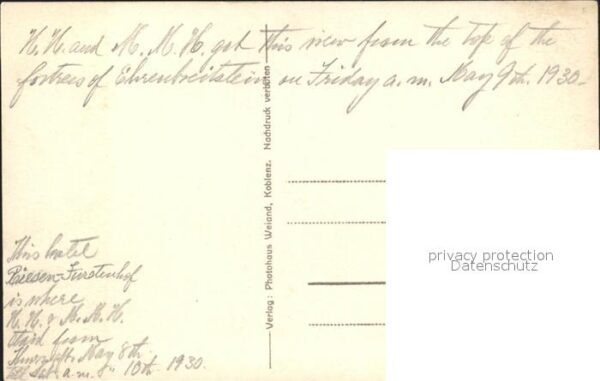 H. H. and M. M. H. got this view from the top of the
fortress of Ehrenbreitstein on Friday a.m. May 9th. 1930-
Verlag: Photohaus Weiand, Koblenz. Nachdruck verboten
This hotel
Riesen-Furstenhof
is where
H. H. & M. M. H.
staid from
Thurs. aft. May 8th
till Sat. a.m. " 10th. 1930.
privacy protection
Datenschutz